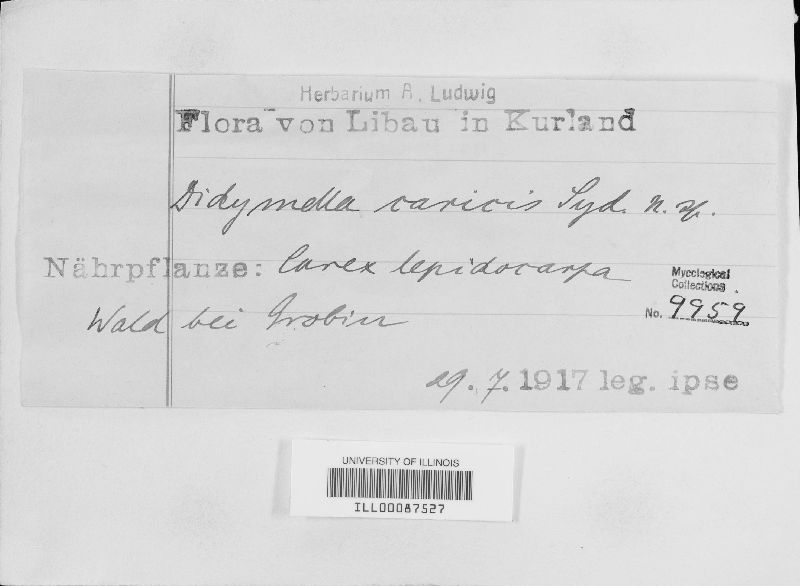 Herbarium A. Ludwig
Flora von Libau in Kurland
Didymella caricis Syd. n. sp.
Nährpflanze: Carex lepidocarpa
Mycological
Collections
No. 9959
Wald bei Grobin
29. 7. 1917 leg. ipse
UNIVERSITY OF ILLINOIS
ILL00087527